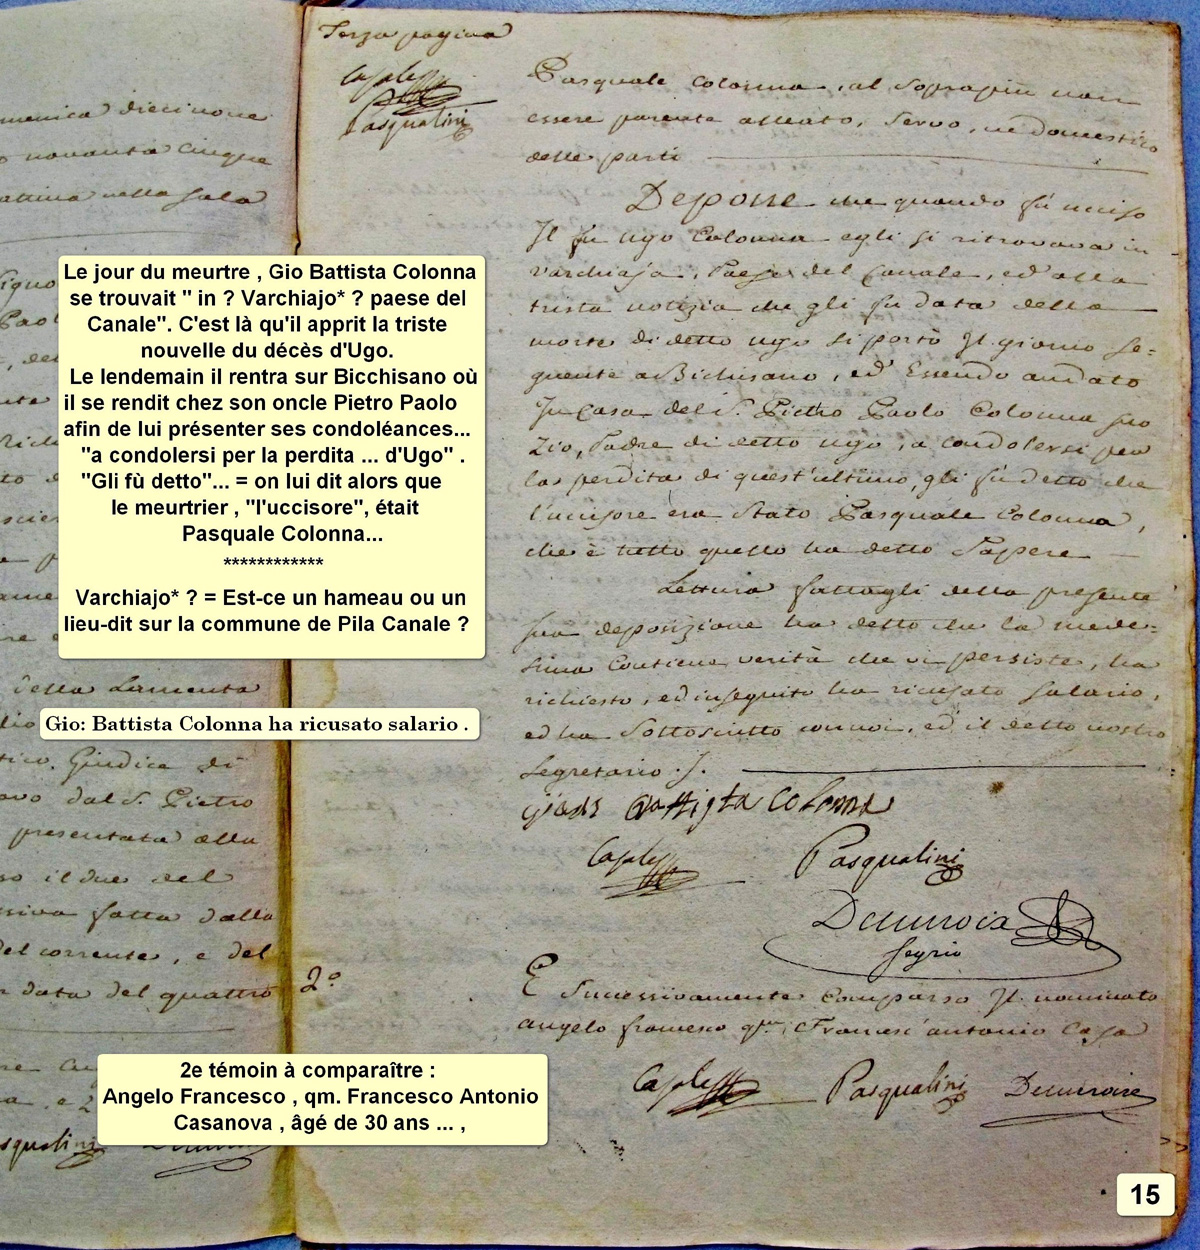 menica diecinove
novanta cinque
mattina nella sala
della Lamenta
Giudice di
avo dal S. Pietro
presentata alla
so il due del
fatta dalla
del corrente, e del
data del quattro
Terza pagina
Pasqualini
Pasquale Colonna, al Soprapiu non
essere parente alleato, servo, ne domestico
delle parti
Depone che quando fú ucciso
Il fu Ugo Colonna egli si ritrovava in
Varchiajo, Paese del Canale, ed alla
trista notizia che gli fu data della
morte di detto Ugo si portò Il giorno se=
guente a Bichisano, ed Essendo andato
In Casa del S. Pietro Paolo Colonna suo
Zio, Padre di detto Ugo, a condolersi per
la perdita di quest'ultimo, gli fú detto che
l'uccisore era stato Pasquale Colonna,
che è tutto quello ha detto Sapere
Lettura fattagli della presente
sua deposizione ha detto che la mede=
sima Contiene verità che vi persiste, ha
richiesto, ed inseguito ha ricusato salario,
ed ha Sottoscritto con noi, ed il detto nostro
Segretario. /.
Battista Colonna
Pasqualini
Segrio
2°
E Successivamente Comparso Il nominato
angelo francesco qm Francesc'antonio Casa
Pasqualini
Le jour du meurtre , Gio Battista Colonna
se trouvait " in ? Varchiajo* ? paese del
Canale". C'est là qu'il apprit la triste
nouvelle du décès d'Ugo.
Le lendemain il rentra sur Bicchisano où
il se rendit chez son oncle Pietro Paolo
afin de lui présenter ses condoléances...
"a condolersi per la perdita ... d'Ugo" .
"Gli fù detto"... = on lui dit alors que
le meurtrier , "l'uccisore", était
Pasquale Colonna...
************
Varchiajo* ? = Est-ce un hameau ou un
lieu-dit sur la commune de Pila Canale ?
Gio: Battista Colonna ha ricusato salario .
2e témoin à comparaître :
Angelo Francesco , qm. Francesco Antonio
Casanova , âgé de 30 ans ... ,
15